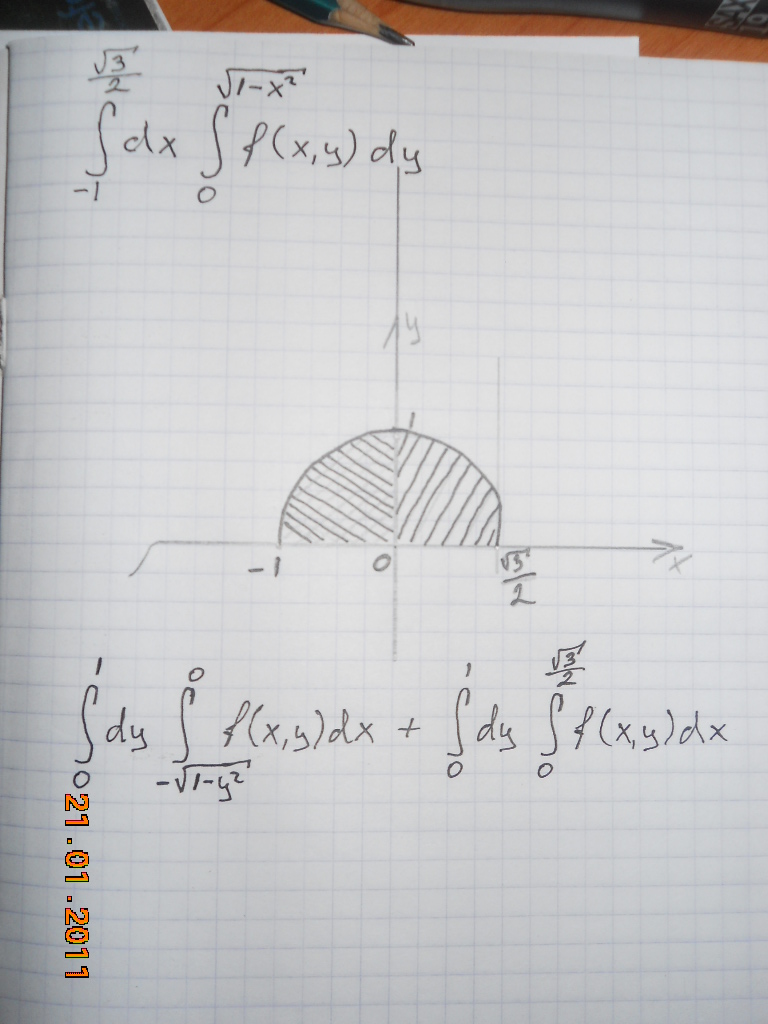 ∫_{-1}^{√3/2} dx ∫_{0}^{√1-x²} f(x,y) dy
y
1
-1 0 √3/2 x
∫_{0}^{1} dy ∫_{-√1-y²}^{0} f(x,y)dx + ∫_{0}^{1} dy ∫_{0}^{√3/2} f(x,y)dx
21.01.2011